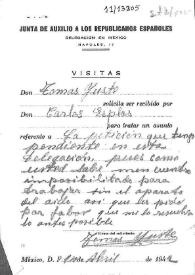 12/13305
JUNTA DE AUXILIO A LOS REPUBLICANOS ESPAÑOLES
DELEGACION EN MEXICO
NAPOLES,
VISITAS
Don Tomas Yuste
solicita ser recibido por
Don Carlos Esplas
para tratar un asunto
referente a La peticion que tengo
pendiente en esta
Delegacion, pues como
usted sabe me encuentro
imposibilitado para
trabajar sin el aparato
del aire, asi que les pido
por favor que me lo resuelvan
lo antes posible
Firma del solicitante
Tomas Yuste
México, D. F. Abril de 1942